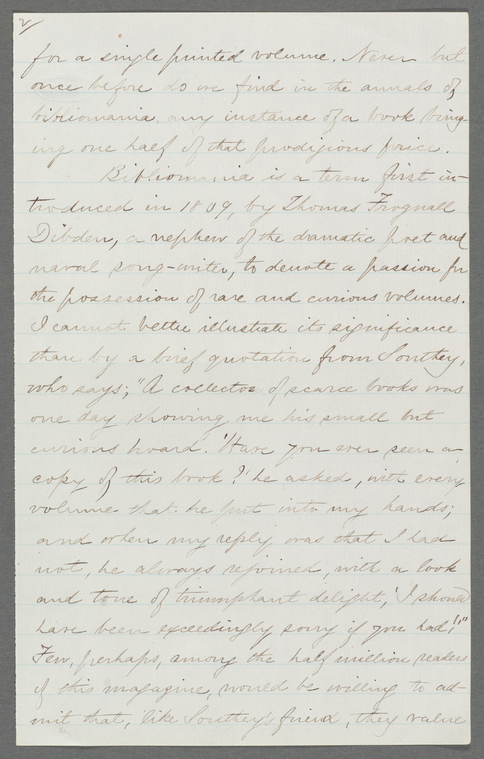 2/
for a single printed volume. Never but
once before do we find in the annals of
bibliomania, any instance of a book bring-
ing one half of that prodigious price.
Bibliomania is a term first in-
troduced in 1809, by Thomas Frognall
Dibden, a nephew of the dramatic poet and
naval song-writer, to denote a passion for
the possession of rare and curious volumes.
I cannot better illustrate its significance
than by a brief quotation from Southey,
who says; "A collector of scarce books was
one day showing me his small but
curious hoard. 'Have you ever seen a
copy of this book?' he asked, with every
volume that he put into my hands;
and when my reply was that I had
not, he always rejoined, with a look
and tone of triumphant delight, 'I should
have been exceedingly sorry if you had!'"
Few, perhaps, among the half million readers
of this magazine, would be willing to ad-
mit that, like Southey's friend, they value